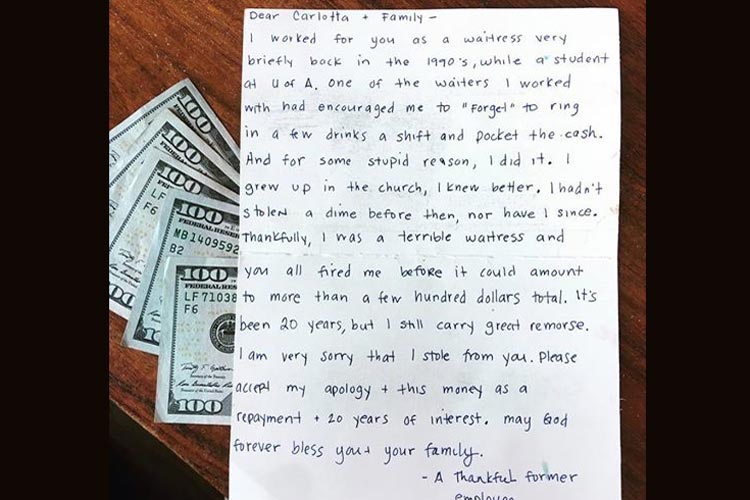 Dear Carlotta + Family -
I worked for you as a waitress very
briefly back in the 1990's, while a student
at U of A. One of the waiters I worked
with had encouraged me to "Forget" to ring
in a few drinks a shift and pocket the cash.
And for some stupid reason, I did it. I
grew up in the church, I knew better. I hadn't
stolen a dime before then, nor have I since.
Thankfully, I was a terrible waitress and
you all fired me before it could amount
to more than a few hundred dollars total. It's
been 20 years, but I still carry great remorse.
I am very sorry that I stole from you. Please
accept my apology + this money as a
repayment + 20 years of interest. may God
forever bless you + your family.
- A Thankful former
employee
100
100
100
LF
F6
100
FEDERAL RESE
MB1409592
B2
100
FEDERAL RES
LF71038
F6
100